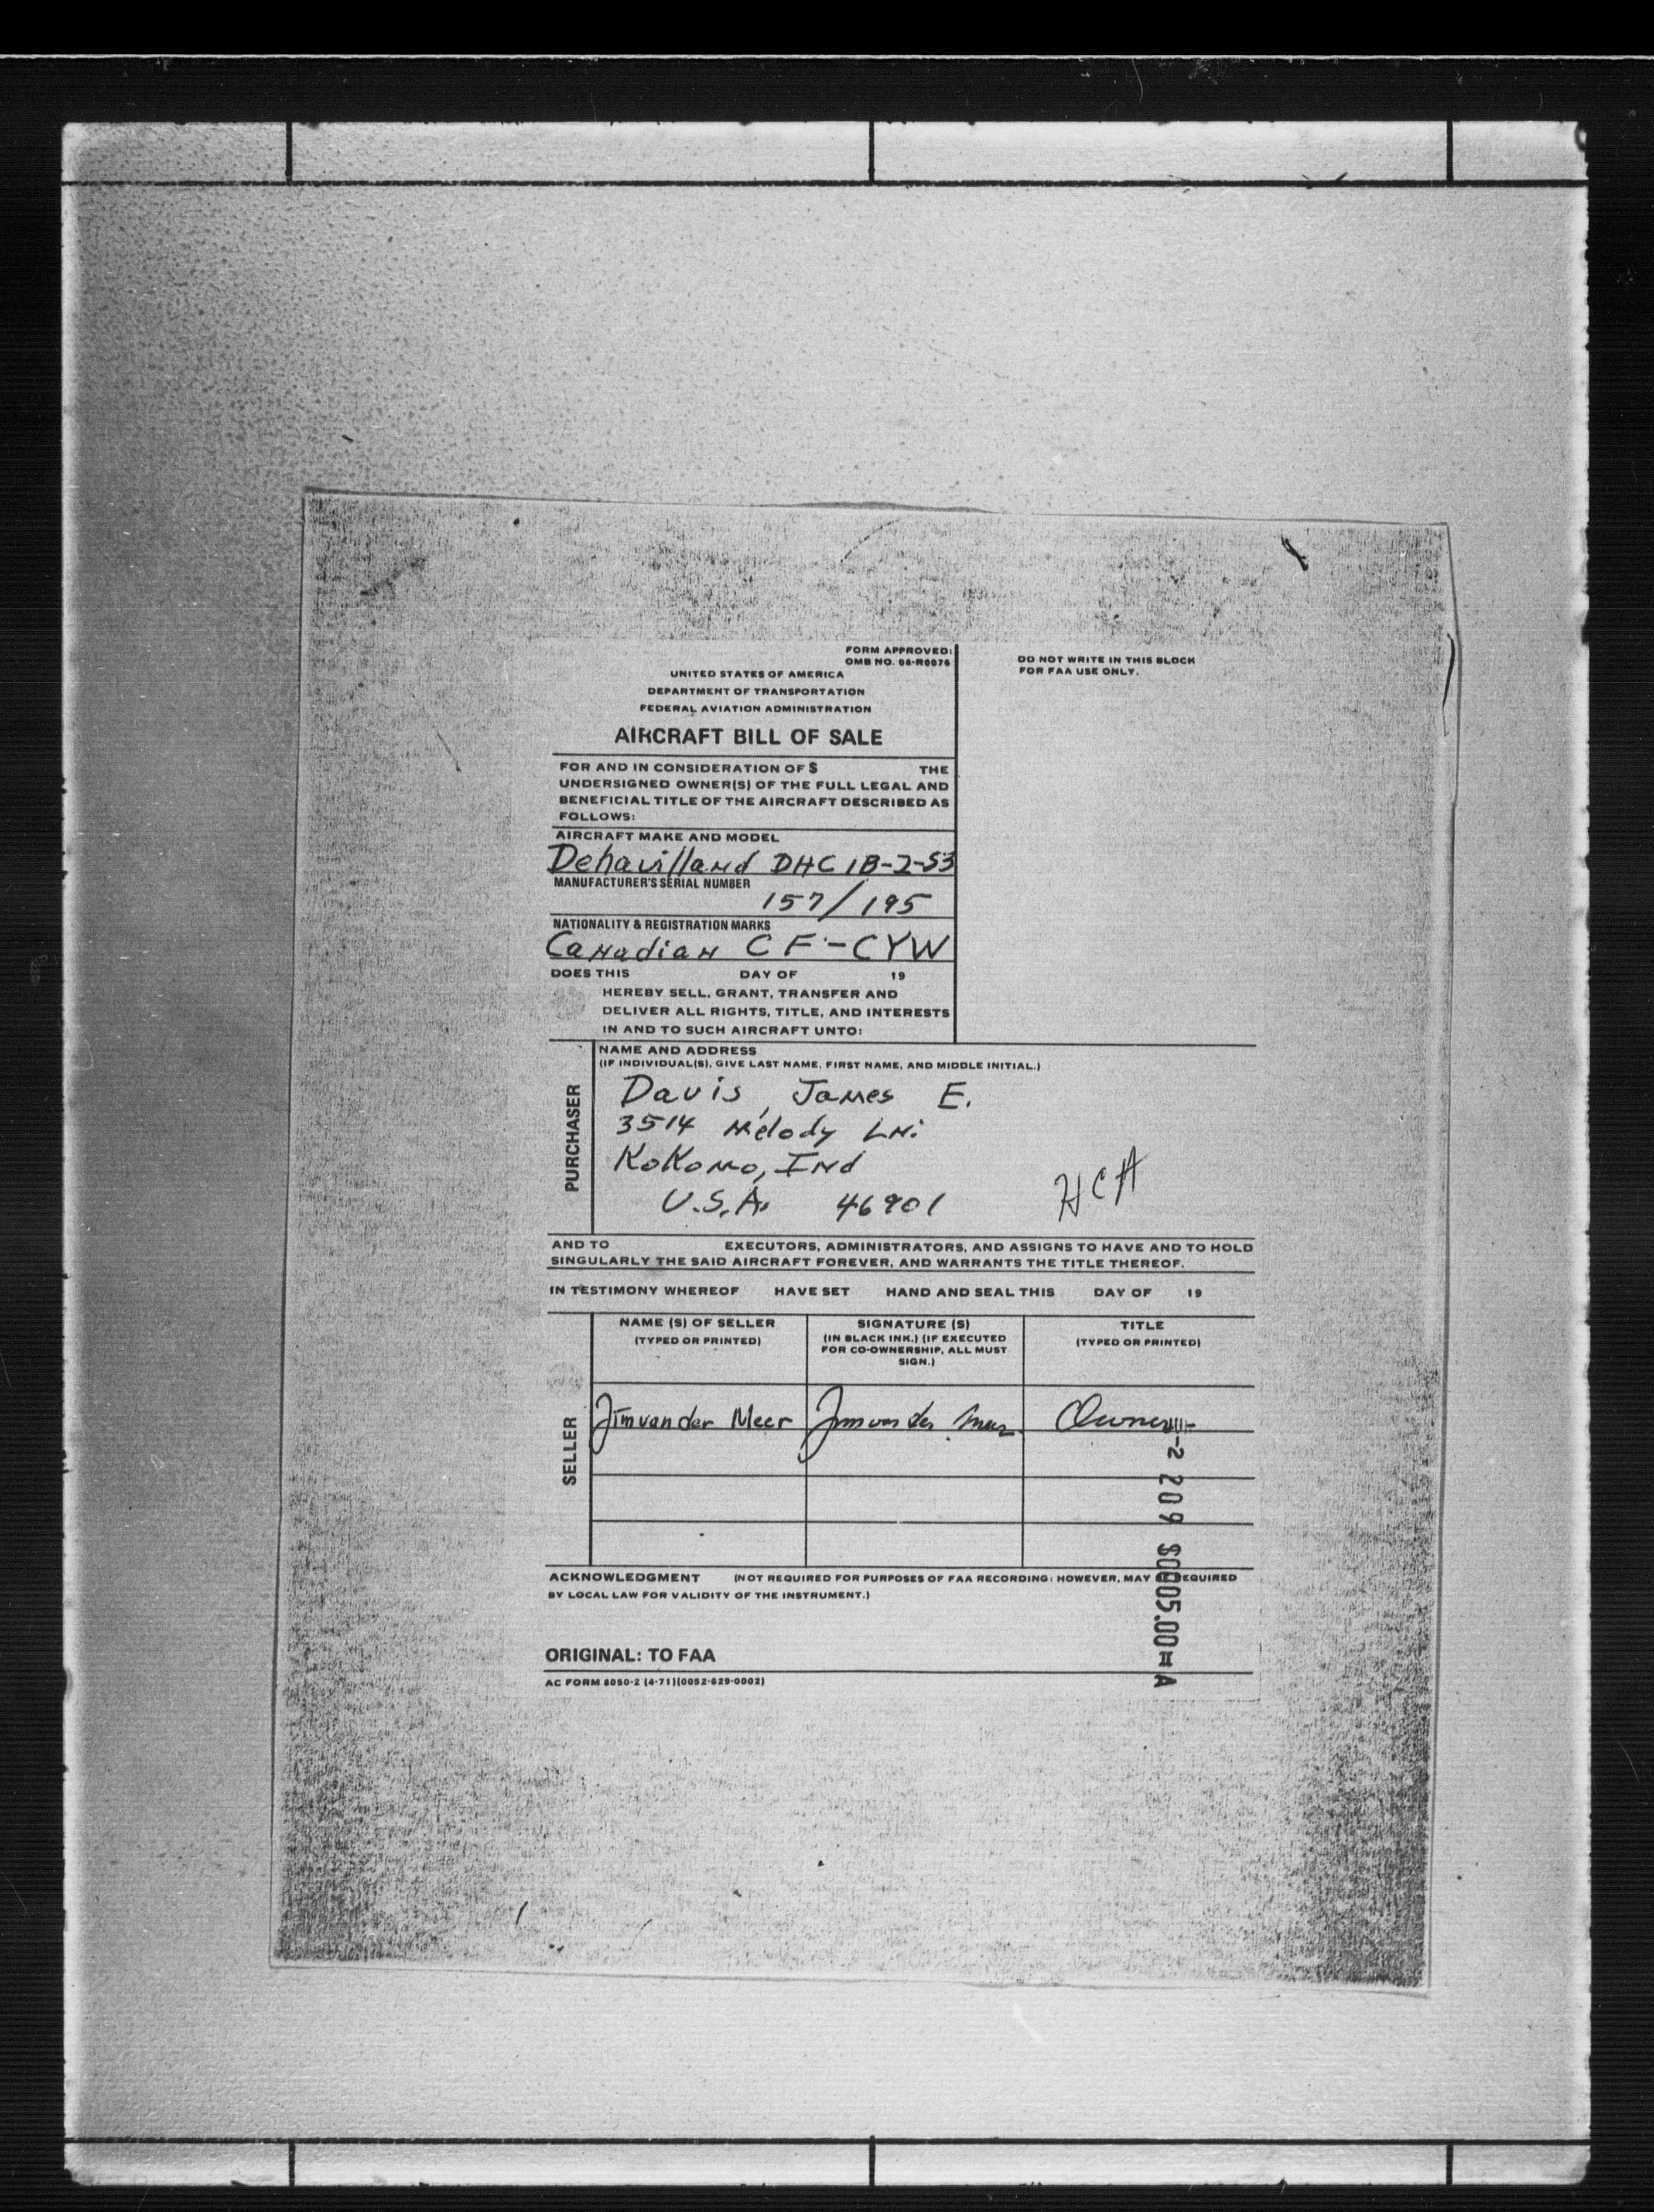 FORM APPROVED:
OMB NO. 04-R0076
UNITED STATES OF AMERICA
DEPARTMENT OF TRANSPORTATION
FEDERAL AVIATION ADMINISTRATION
AIRCRAFT BILL OF SALE
DO NOT WRITE IN THIS BLOCK
FOR FAA USE ONLY.
FOR AND IN CONSIDERATION OF $ THE
UNDERSIGNED OWNER(S) OF THE FULL LEGAL AND
BENEFICIAL TITLE OF THE AIRCRAFT DESCRIBED AS
FOLLOWS:
AIRCRAFT MAKE AND MODEL
Dehavilland DHC 1B-2-S3
MANUFACTURER'S SERIAL NUMBER
157/195
NATIONALITY & REGISTRATION MARKS
Canadian CF-CYW
DOES THIS DAY OF 19
HEREBY SELL, GRANT, TRANSFER AND
DELIVER ALL RIGHTS, TITLE, AND INTERESTS
IN AND TO SUCH AIRCRAFT UNTO:
PURCHASER
NAME AND ADDRESS
(IF INDIVIDUAL(S), GIVE LAST NAME, FIRST NAME, AND MIDDLE INITIAL.)
Davis, James E.
3514 Melody LN.
KoKomo, Ind
U.S.A. 46901
HCA
AND TO EXECUTORS, ADMINISTRATORS, AND ASSIGNS TO HAVE AND TO HOLD
SINGULARLY THE SAID AIRCRAFT FOREVER, AND WARRANTS THE TITLE THEREOF.
IN TESTIMONY WHEREOF HAVE SET HAND AND SEAL THIS DAY OF 19
SELLER
NAME (S) OF SELLER
(TYPED OR PRINTED)
SIGNATURE (S)
(IN BLACK INK.) (IF EXECUTED
FOR CO-OWNERSHIP, ALL MUST
SIGN.)
TITLE
(TYPED OR PRINTED)
Jim van der Meer Jim van der Meer Owner
-2 209 $0005.00 II A
ACKNOWLEDGMENT (NOT REQUIRED FOR PURPOSES OF FAA RECORDING: HOWEVER, MAY EQUIRED
BY LOCAL LAW FOR VALIDITY OF THE INSTRUMENT.)
ORIGINAL: TO FAA
AC FORM 8050-2 (4-71)(0052-629-0002)